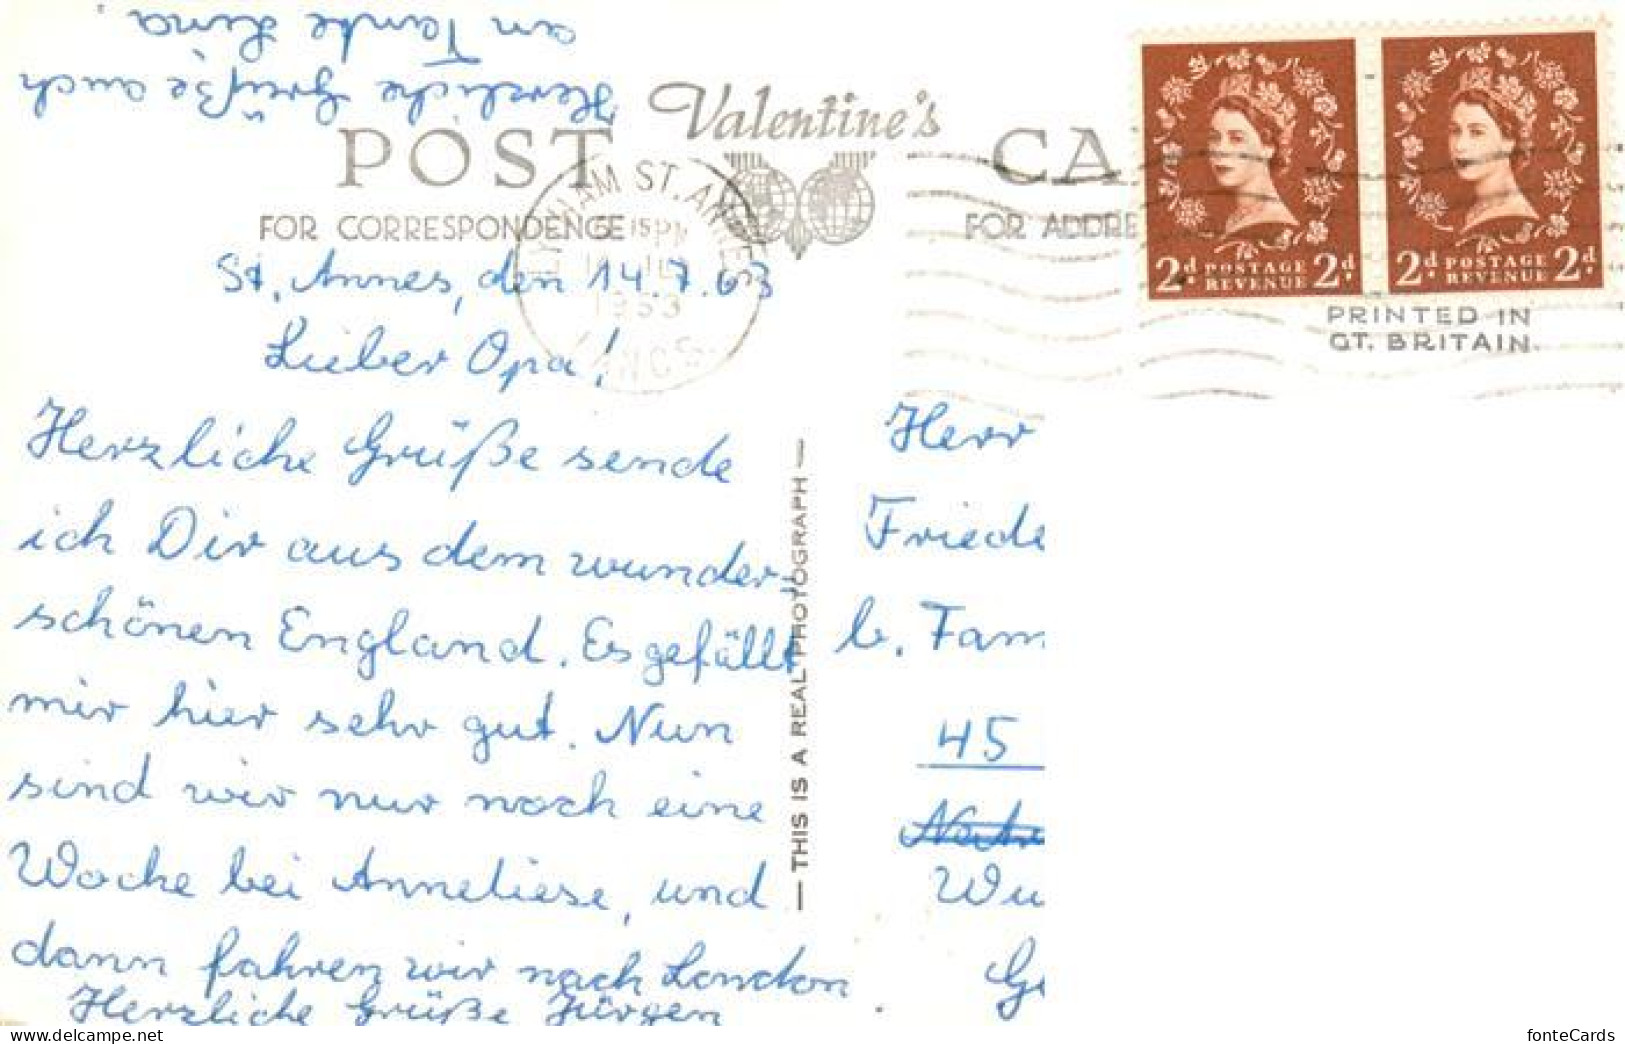 Herzliche Grüße auch
an Tante Lina.
Valentine's
POST CA
FOR CORRESPONDENCE
FOR ADDRE
ST. ANNES
15 PM
LANCS.
2d POSTAGE REVENUE 2d
2d POSTAGE REVENUE 2d
PRINTED IN
GT. BRITAIN.
St. Annes, den 14.7.63
Lieber Opa!
Herzliche Grüße sende
ich Dir aus dem wunder-
schönen England. Es gefällt
mir hier sehr gut. Nun
sind wir nur noch eine
Woche bei Anneliese, und
dann fahren wir nach London.
Herzliche Grüße Jürgen
— THIS IS A REAL PHOTOGRAPH —
Herr
Friede
b. Fam
45
Wu
fonteCards